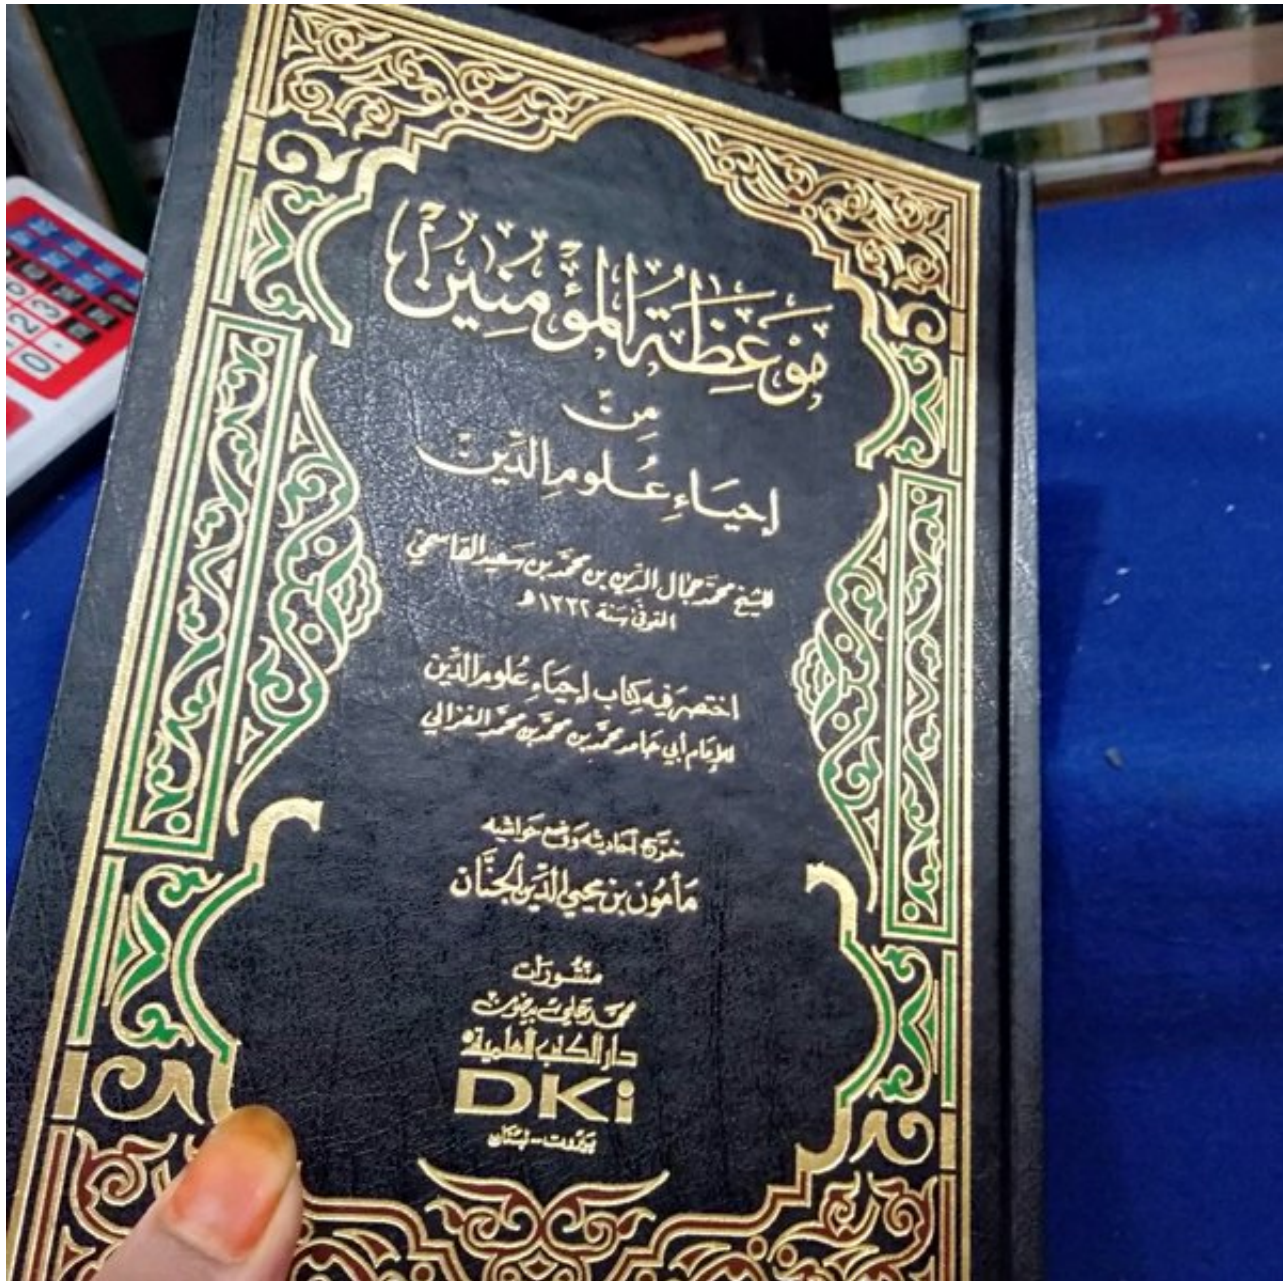 مَوْعِظَةُ المُؤْمِنِين
مِنْ
إحيَاءِ عُلومِ الدِّين
للشيخ محمَّد جمال الدين بن محمَّد بن سَعيد القاسميّ
المتوفى سَنة ١٣٣٢ هـ
اختصرَ فيه كِتاب إحيَاءِ عُلوم الدِّين
للإمَام أبي حَامد محمَّد بن محمَّد بن محمَّد الغزالي
خرَّج أحاديثه وَوضع حَواشيه
مَأمون بن محيي الدِّين الجنَّان
منشورات
محمد علي بيضون
دار الكتب العلمية
DKi
بيروت - لبنان
3
2
0